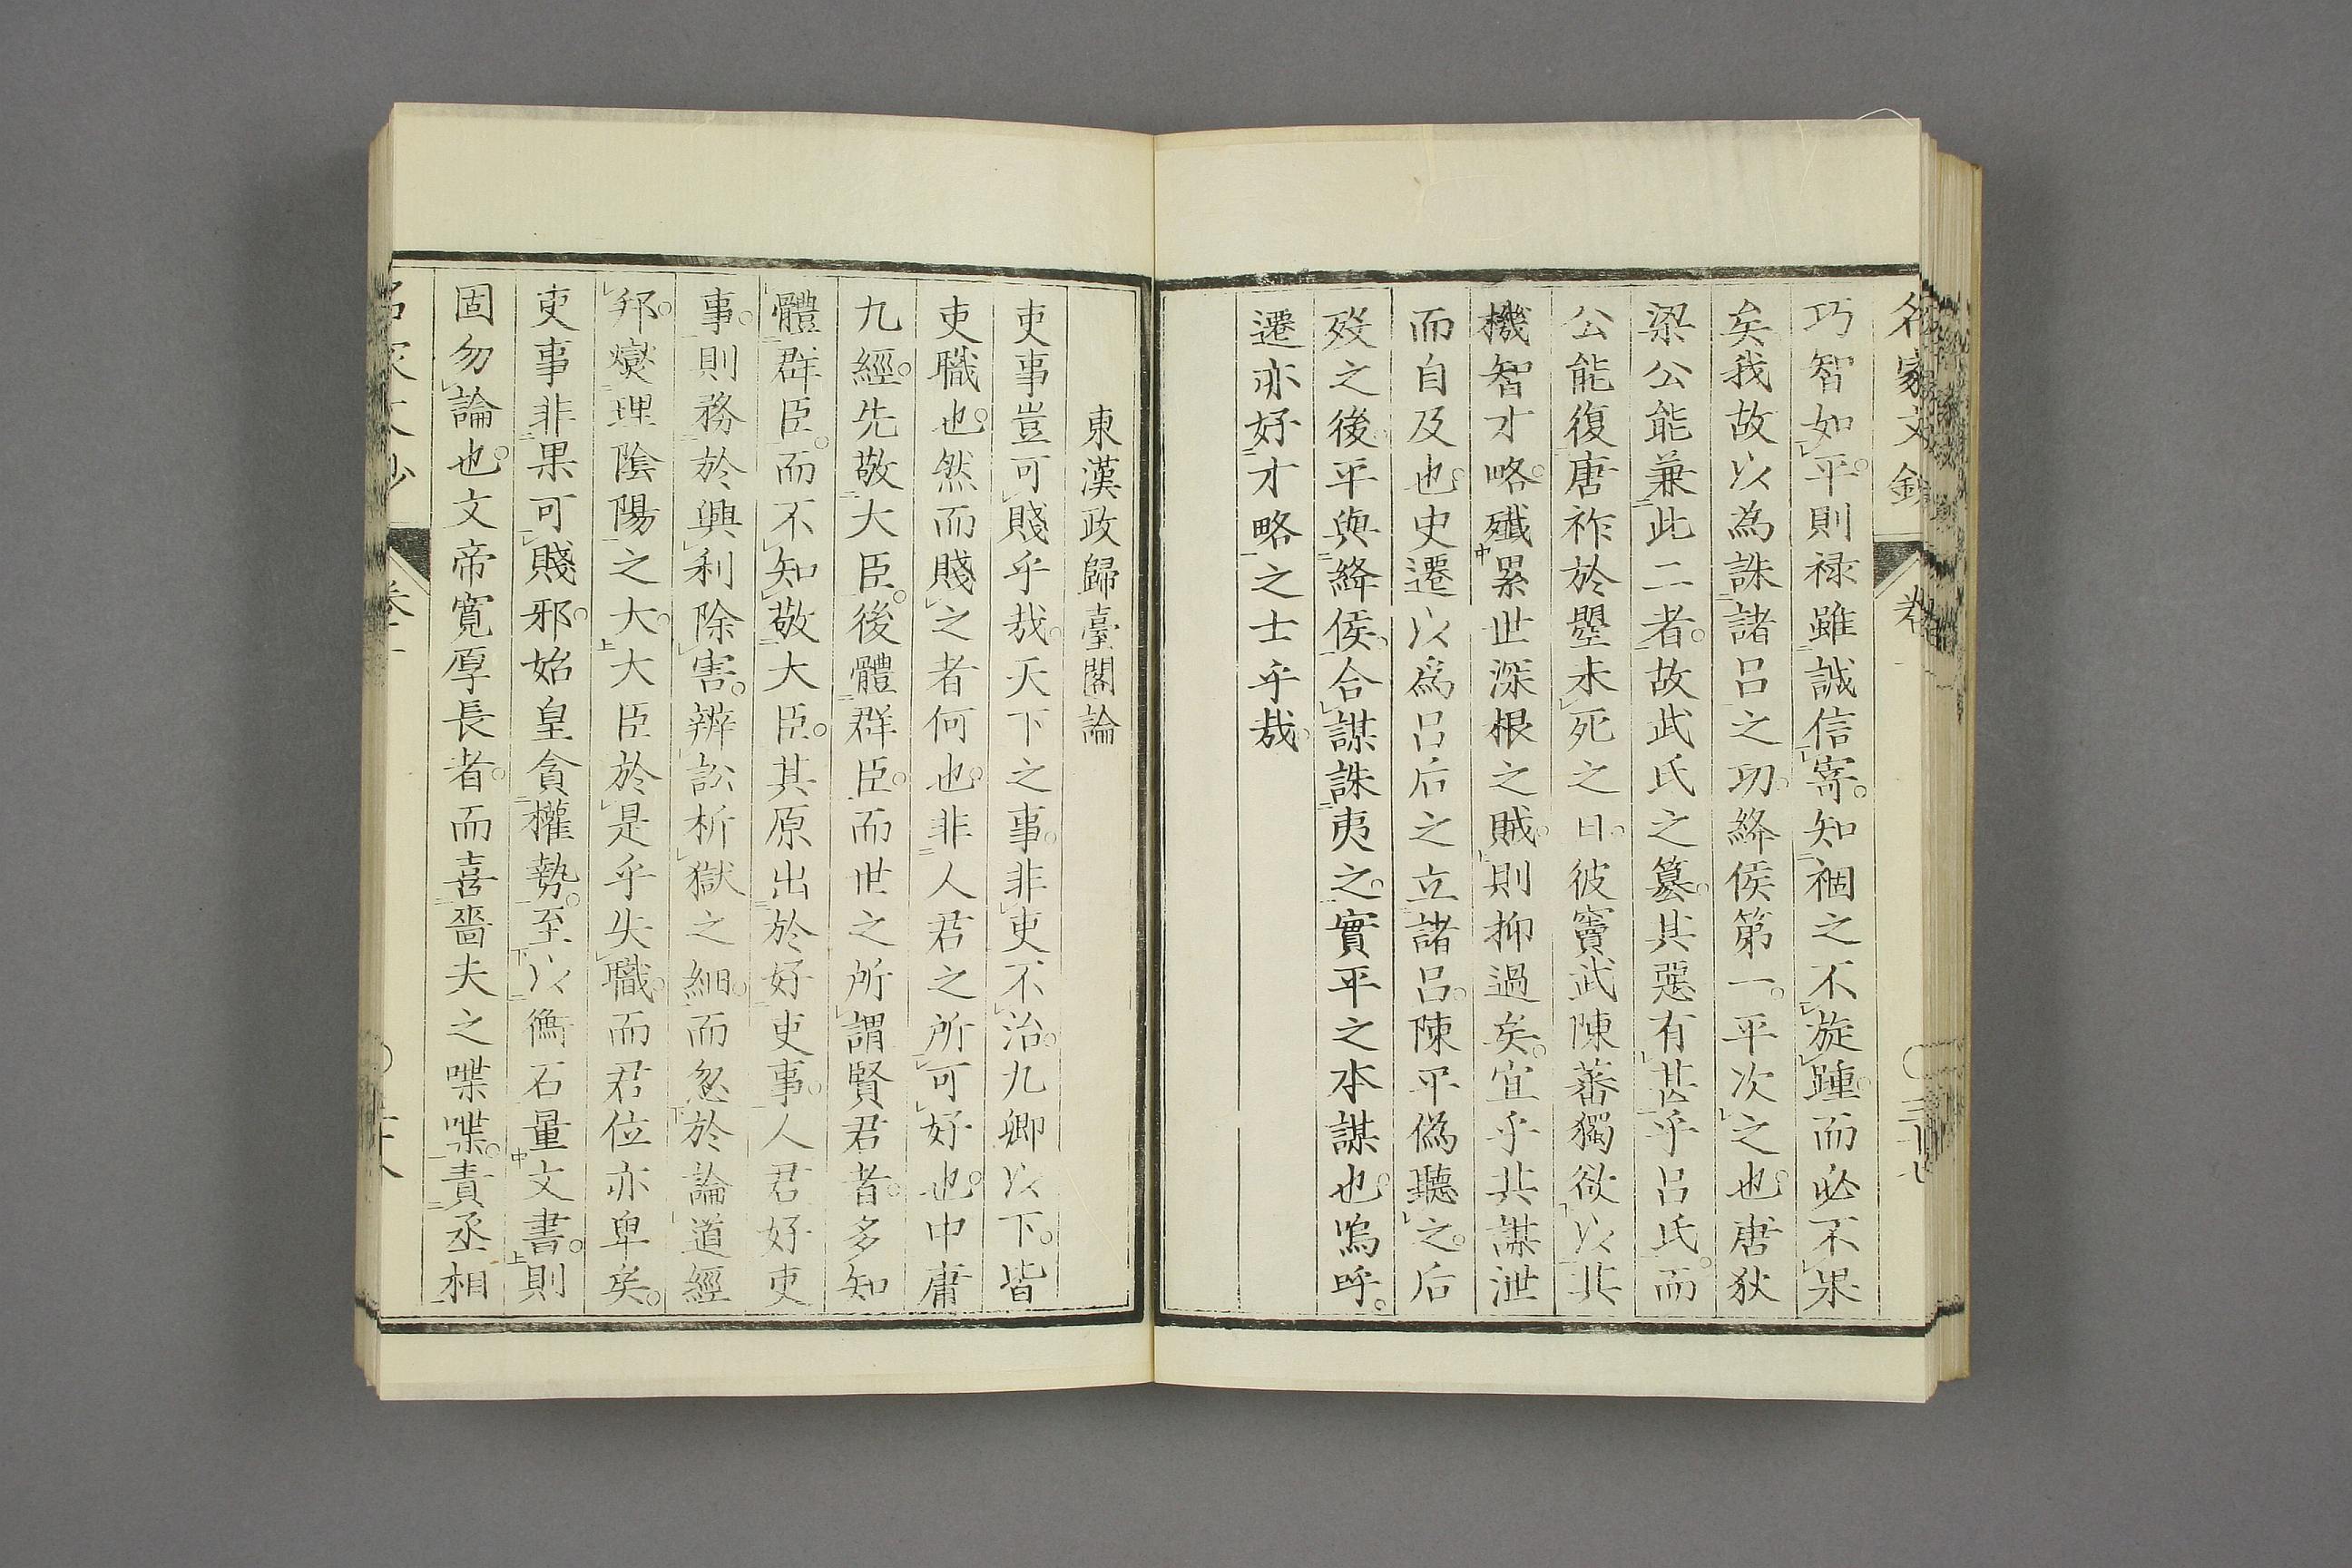 名家文鈔 卷
巧智如平則禄雖誠信寄知禍之不旋踵而必不果
矣我故以為誅諸呂之功絳侯第一平次之也唐狄
梁公能兼此二者故武氏之簒其惡有甚乎呂氏而
公能復唐祚於墾未死之日彼竇武陳蕃獨欲以其
機智才略殲累世深根之賊則抑過矣宜乎其謀泄
而自及也史遷以爲呂后之立諸呂陳平僞聽之后
歿之後平與絳侯合謀誅夷之實平之本謀也嗚呼
遷亦好才略之士乎哉
東漢政歸臺閣論
吏事豈可賤乎哉天下之事非吏不治九卿以下皆
吏職也然而賤之者何也非人君之所可好也中庸
九經先敬大臣後體群臣而世之所謂賢君者多知
體群臣而不知敬大臣其原出於好吏事人君好吏
事則務於興利除害辨訟析獄之細而忽於論道經
邦燮理陰陽之大大臣於是乎失職而君位亦卑矣
吏事非果可賤邪始皇貪權勢至以衡石量文書則
固勿論也文帝寛厚長者而喜嗇夫之喋喋責丞相
名家文鈔